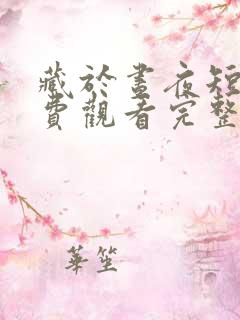 藏於晝夜短
費觀看完整
華笙